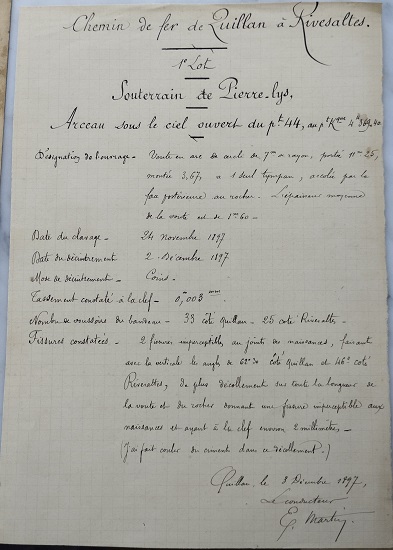 Chemin de fer de Quillan à Rivesaltes.
1er Lot
Souterrain de Pierre-lys.
Arceau sous le ciel ouvert du pt 44, au pt Kque
Désignation de l'ouvrage - Voute en arc de cercle de 7m,00 rayon, portée 11m,25,
montée 3,67, à 1 seul tympan, accolée par la
face postérieure au rocher. - L'épaisseur moyenne
de la voute est de 1m60 -
Date du clavage - 24 novembre 1897
Date du décintrement 2 Décembre 1897
Mode de décintrement - Coins -
Tassement constaté à la clef - 0,003 mm
Nombre de voussoirs du bandeau - 33 côté Quillan - 25 côté Rivesaltes -
Fissures constatées - 2 fissures imperceptibles, au joints des naissances, faisant
avec la verticale le angle de 62° côté Quillan et 46° coté
Rivesaltes, de plus décollement sur toute la longueur de
la voute et du rocher donnant une fissure imperceptible aux
naissances et ayant à la clef environ 2 millimètres, -
(J'ai fait couler du ciment dans ce décollement. -)
Quillan, le 3 Décembre 1897,
Le conducteur
E. Martin